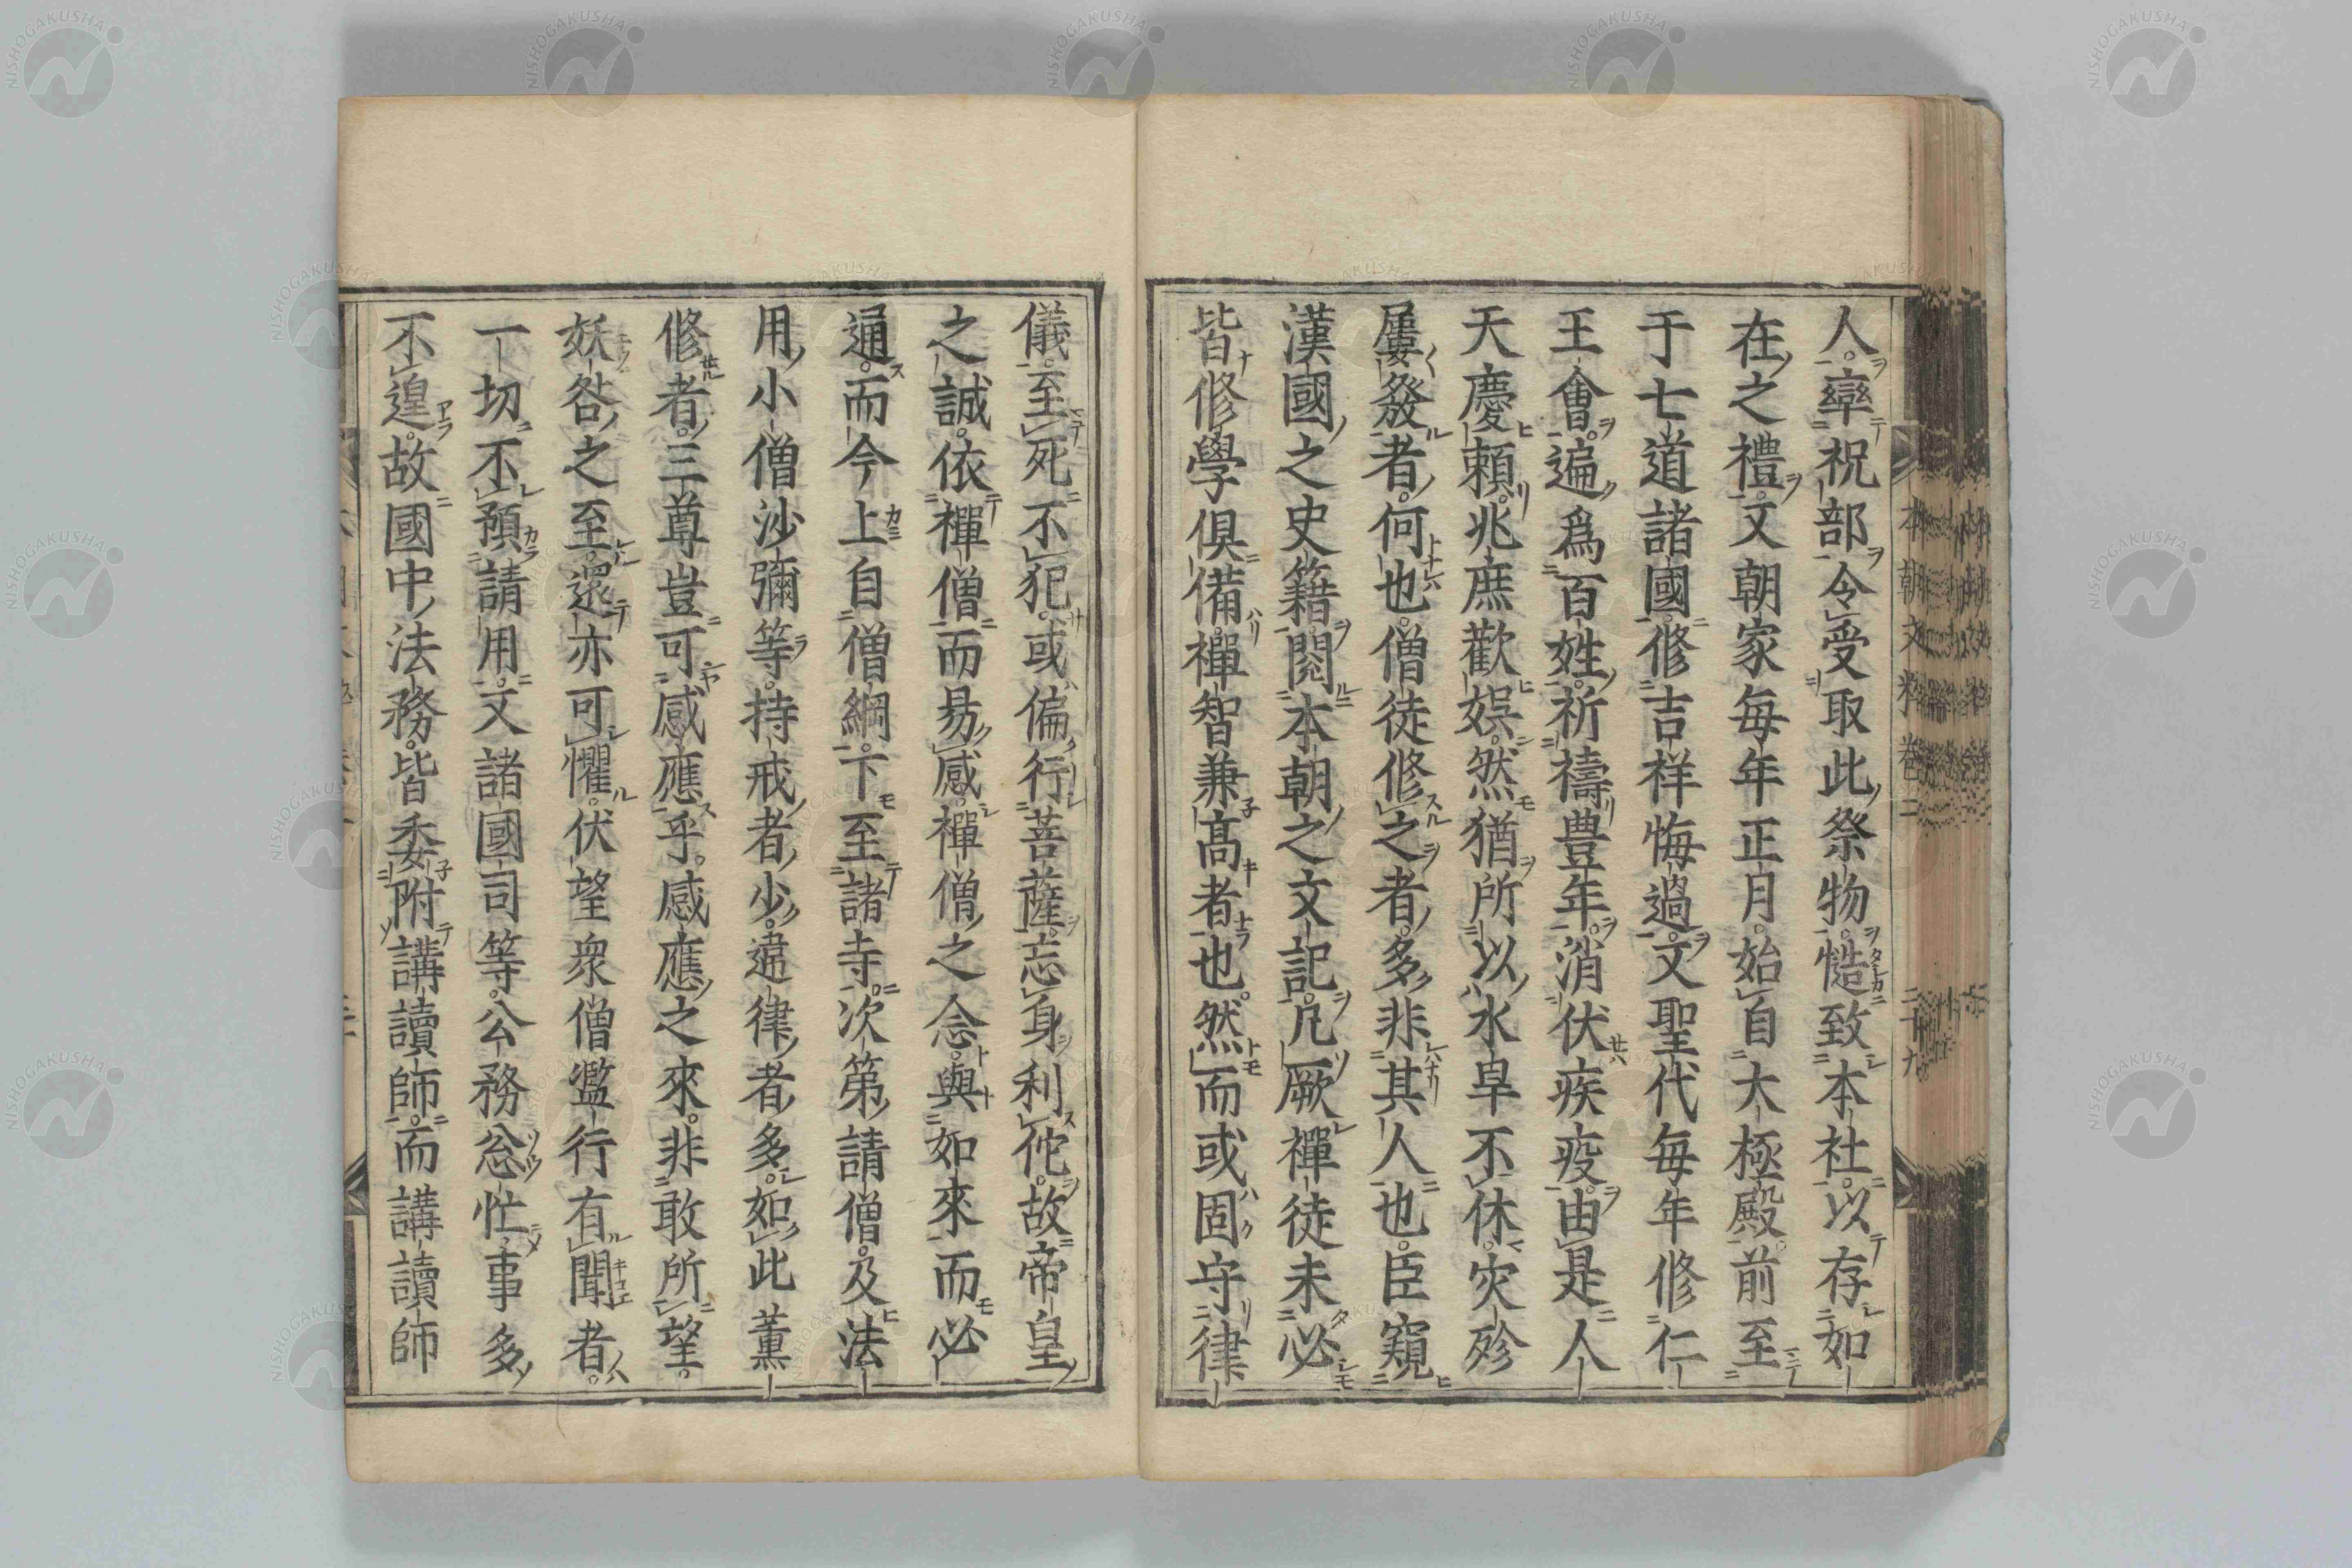 人率祝部令受取此祭物慥致本社以存如
在之禮文朝家每年正月始自大極殿前至
于七道諸國修吉祥悔過文聖代每年修仁
王會遍爲百姓祈禱豊年消伏疾疫由是人
天慶賴兆庶歡娯然猶所以水旱不休灾殄
屢發者何也僧徒修之者多非其人也臣窺
漢國之史籍閱本朝之文記凡厥禪徒未必
皆修學俱備禪智兼高者也然而或固守律
儀至死不犯或偏行菩薩忘身利佗故帝皇
之誠依禪僧而易感禪僧之念與如來而必
通而今上自僧綱下至諸寺次第請僧及法
用小僧沙彌等持戒者少違律者多如此薰
修者三尊豈可感應乎感應之來非敢所望
妖咎之至還亦可懼伏望衆僧濫行有聞者
一切不預請用文諸國司等公務忩忙事多
不遑故國中法務皆委附講讀師而講讀師
本朝文粹卷二
二十九
NISHOGAKUSHA